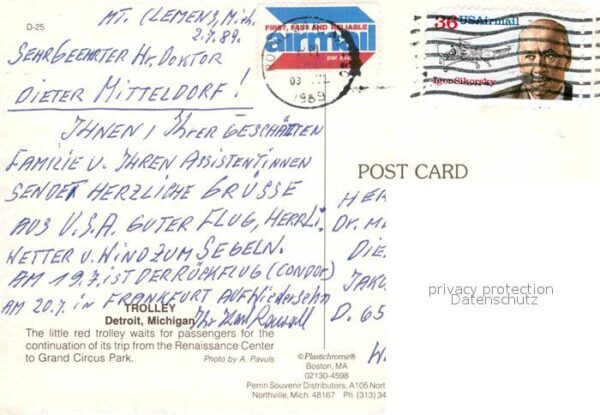 D-25
MT. CLEMENS, Mich.
2.7.89.
SEHRGEEHRTER Hr. DOKTOR
DIETER MITTELDORF!
IHNEN, IHRER GESCHÄTZTEN
FAMILIE U. IHREN ASSISTENTINNEN
SENDET HERZLICHE GRÜSSE
AUS U.S.A. GUTER FLUG, HERRLI.
WETTER U. WIND ZUM SEGELN.
AM 19.7. IST DER RÜCKFLUG (CONDOR)
AM 20.7. IN FRANKFURT AUF Wiedersehn
Ihr Karl
TROLLEY
Detroit, Michigan
The little red trolley waits for passengers for the
continuation of its trip from the Renaissance Center
to Grand Circus Park.
Photo by A. Pavuls
FIRST, FAST AND RELIABLE
airmail
par avion
03
1989
36 USAirmail
Igor Sikorsky
POST CARD
HER
Dr. M
DIE
JAKO
D. 65
W
privacy protection
Datenschutz
©Plastichrome®
Boston, MA
02130-4598
Perrin Souvenir Distributors, A105 Nort
Northville, Mich. 48167 Ph. (313) 34